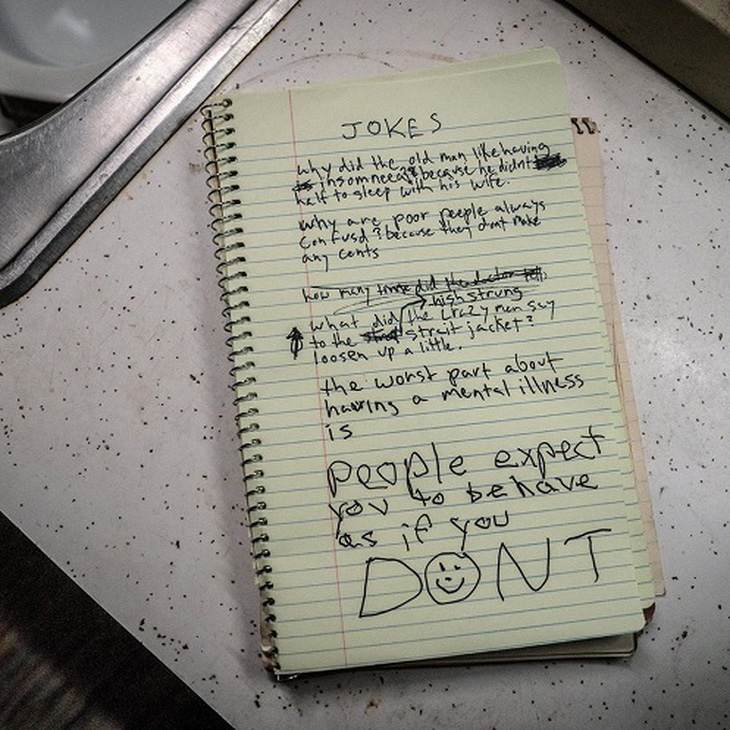 JOKES
why did the old man like having
insomneea? because he didnt
haft to sleep with his wife.
why are poor people always
confusd? because they dont make
any cents
how many did the doctor
high strung
what did the crazy man say
to the strait jacket?
loosen up a little.
the worst part about
having a mental illness
is
people expect
you to behave
as if you
DONT